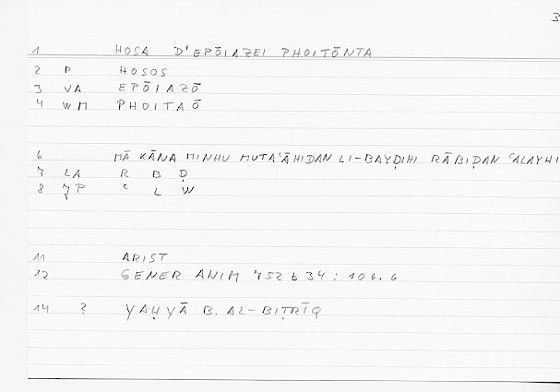 3
1 HOSA D'EPŌIAZEI PHOITŌNTA
2 P HOSOS
3 VA EPŌIAZŌ
4 WM PHOITAŌ
6 MĀ KĀNA MINHU MUTAʿĀHIDAN LI-BAYḌIHI RĀBIḌAN ʿALAYHI
7 LA R B Ḍ
8 ʿ L W
11 ARIST
12 GENER ANIM 752 b 34 : 106.6
14 ? YAḤYĀ B. AL-BIṬRĪQ